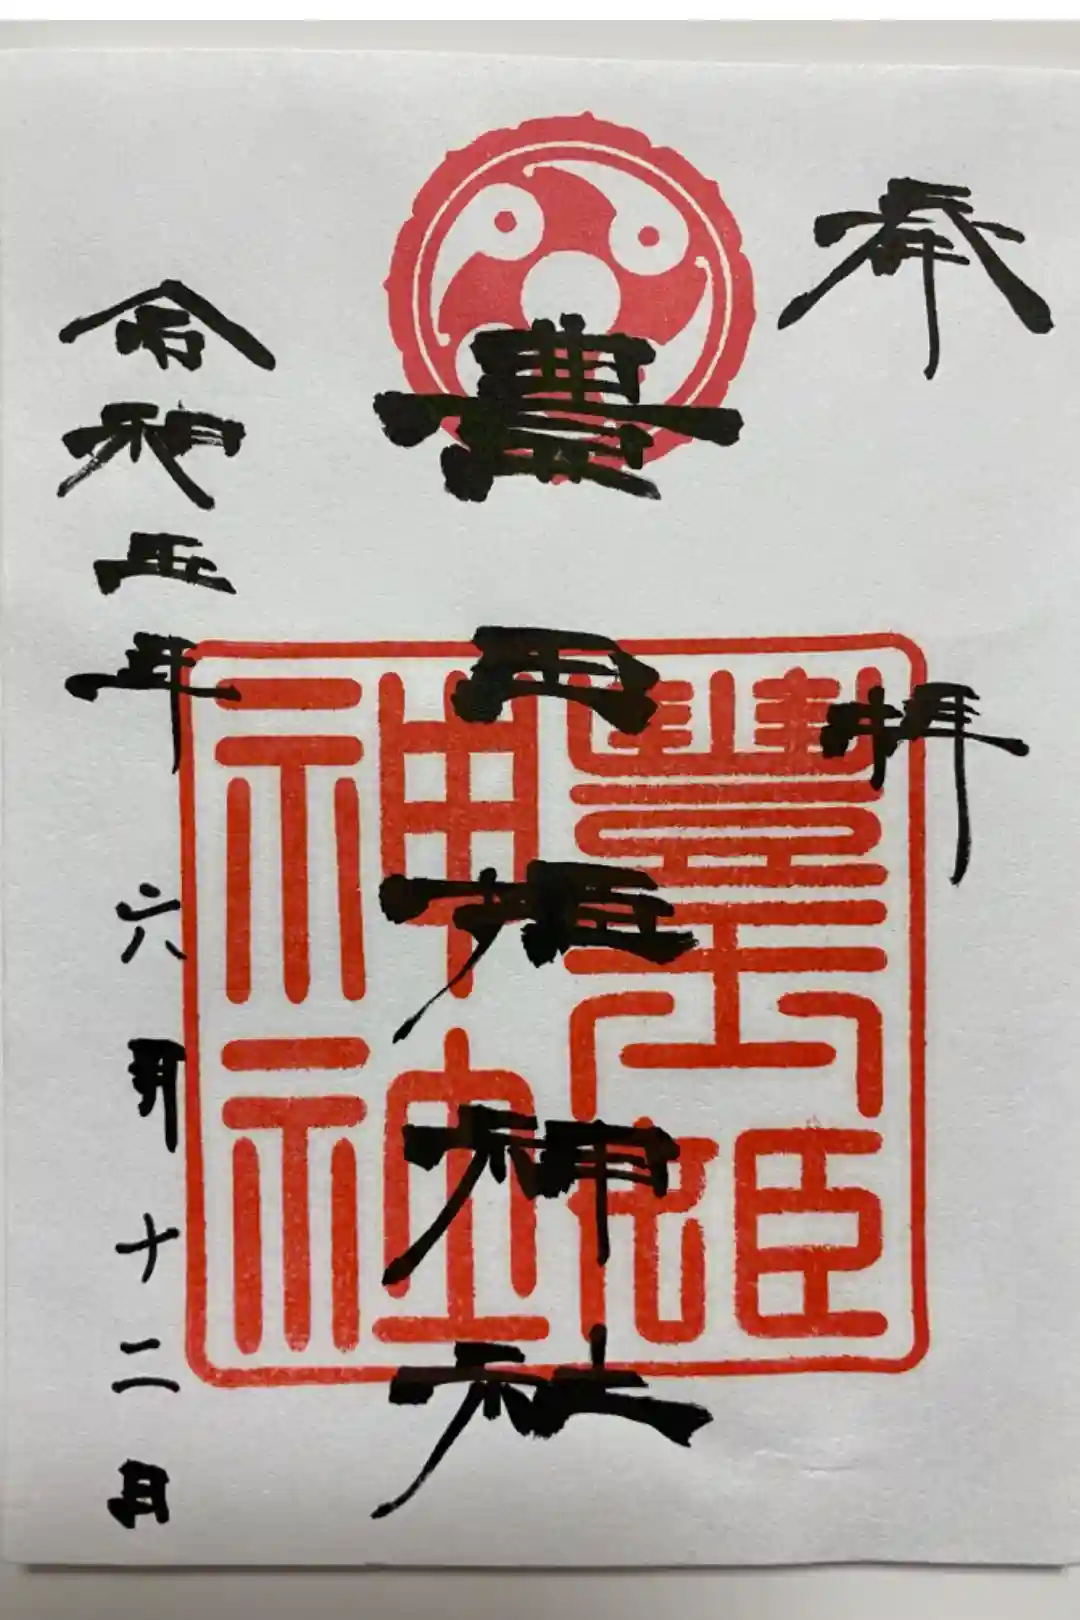 奉拝
豊玉姫神社
令和五年六月十二日
豊玉姫
神社